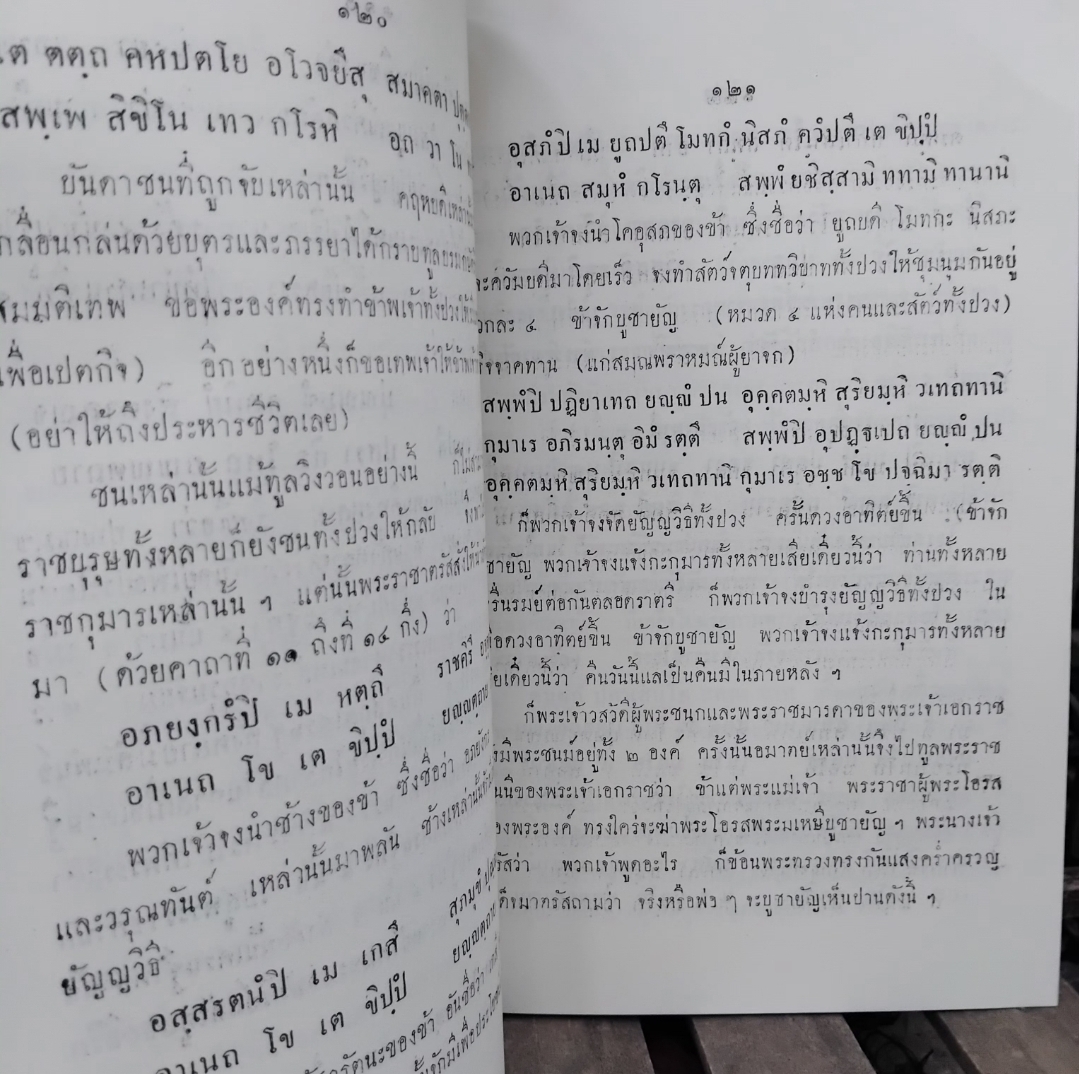 ๑๒๐
เต ตตฺถ คหปตโย อโวจยึสุ สมาคตา
สพฺเพ สิขิโน เทว กโรหิ อถ วา โน
บันดาชนที่ถูกจับเหล่านั้น คฤหบดีเหล่านั้น
เกลื่อนกล่นด้วยบุตรและภรรยาได้กราบทูล
สมมติเทพ ขอพระองค์ทรงทำข้าพเจ้าทั้งปวงให้
เพื่อเปตกิจ) อีกอย่างหนึ่งก็ขอเทพเจ้าได้
(อย่าให้ถึงประหารชีวิตเลย)
ชนเหล่านั้นแม้ทูลวิงวอนอย่างนี้ ก็ไม่
ราชบุรุษทั้งหลายก็ยังชนทั้งปวงให้กลับ
ราชกุมารเหล่านั้น ฯ แต่นั้นพระราชาตรัสสั่งให้
มา (ด้วยคาถาที่ ๑๑ ถึงที่ ๑๔ กึ่ง) ว่า
อภยงฺกรํปิ เม หตฺถึ ราชคิรึ
อาเนถ โข เต ขิปฺปํ ยญฺญตฺถาย
พวกเจ้าจงนำช้างของข้า ซึ่งชื่อว่า
และวรุณทันต์ เหล่านั้นมาพลัน ช้างเหล่านั้น
ยัญญวิธี
อสฺสรตนํปิ เม เกสึ สุภมุขํ
อาเนถ โข เต ขิปฺปํ ยญฺญตฺถาย
รัตนะของข้า อันชื่อว่า
๑๒๑
อุสภํปิ เม ยูถปตึ โมทกํ นิสภํ ควํปตึ เต ขิปฺปํ
อาเนถ สมุหํ กโรนฺตุ สพฺพํ ยชิสฺสามิ ททามิ ทานานิ
พวกเจ้าจงนำโคอุสภของข้า ซึ่งชื่อว่า ยูถบดี โมทกะ นิสภะ
และควัมบดีมาโดยเร็ว จงทำสัตว์จตุบททวิบาททั้งปวงให้ชุมนุมกันอยู่
พวกละ ๔ ข้าจักบูชายัญ (หมวด ๔ แห่งคนและสัตว์ทั้งปวง)
จึงจาคทาน (แก่สมณพราหมณ์ผู้ยาจก)
สพฺพํปิ ปฏิยาเทถ ยญฺญํ ปน อุคฺคตมฺหิ สุริยมฺหิ วเทถทานิ
กุมาเร อภิรมนฺตุ อิมํ รตฺตึ สพฺพํปิ อุปฏฺฐเปถ ยญฺญํ ปน
อุคฺคตมฺหิ สุริยมฺหิ วเทถทานิ กุมาเร อชฺช โข ปจฺฉิมา รตฺติ
ก็พวกเจ้าจงจัดยัญญวิธีทั้งปวง ครั้นดวงอาทิตย์ขึ้น (ข้าจัก
บูชายัญ พวกเจ้าจงแจ้งกะกุมารทั้งหลายเสียเดี๋ยวนี้ว่า ท่านทั้งหลาย
รื่นรมย์ต่อกันตลอดราตรี ก็พวกเจ้าจงบำรุงยัญญวิธีทั้งปวง ใน
เมื่อดวงอาทิตย์ขึ้น ข้าจักบูชายัญ พวกเจ้าจงแจ้งกะกุมารทั้งหลาย
เสียเดี๋ยวนี้ว่า คืนวันนี้แลเป็นคืนมีในภายหลัง ฯ
ก็พระเจ้าวสวัตีผู้พระชนกและพระราชมารดาของพระเจ้าเอกราช
ยังมีพระชนม์อยู่ทั้ง ๒ องค์ ครั้งนั้นอมาตย์เหล่านั้นจึงไปทูลพระราช
ชนนีของพระเจ้าเอกราชว่า ข้าแต่พระแม่เจ้า พระราชาผู้พระโอรส
ของพระองค์ ทรงใคร่จะฆ่าพระโอรสพระมเหษีบูชายัญ ฯ พระนางเจ้า
ตรัสว่า พวกเจ้าพูดอะไร ก็ข้อนพระทรวงทรงกันแสงคร่ำครวญ
เสด็จมาตรัสถามว่า จริงหรือพ่อ ๆ จะบูชายัญเห็นปานดังนี้ ฯ